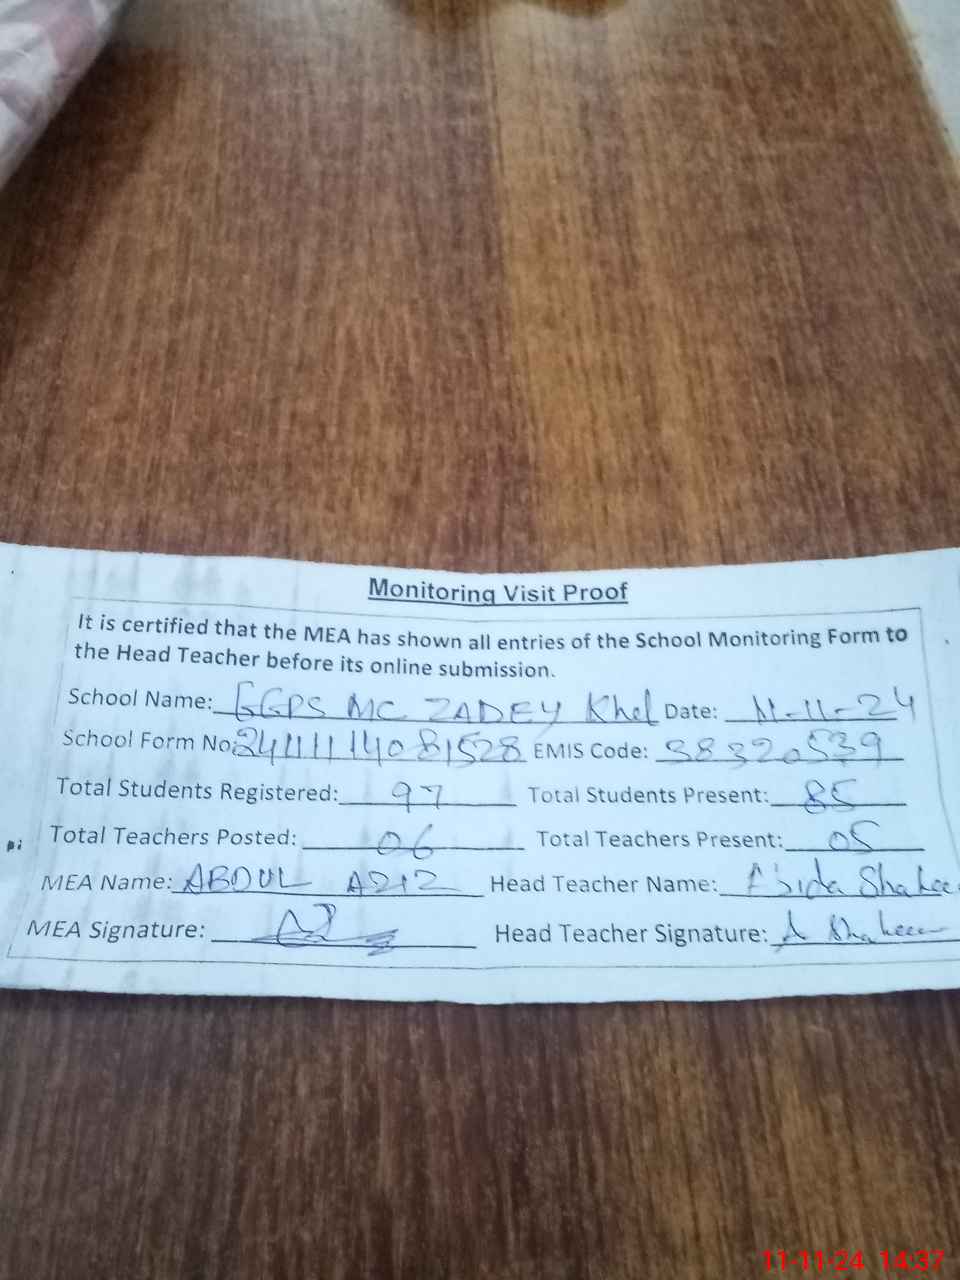 Monitoring Visit Proof
It is certified that the MEA has shown all entries of the School Monitoring Form to
the Head Teacher before its online submission.
School Name: GGPS MC ZADEY Khel Date: 11-11-24
School Form No: 24111114081528 EMIS Code: 38320539
Total Students Registered: 97 Total Students Present: 85
Total Teachers Posted: 06 Total Teachers Present: 05
MEA Name: ABDUL AZIZ Head Teacher Name: Abida Shahee
MEA Signature: Head Teacher Signature: A Shaheen
11-11-24 14:37